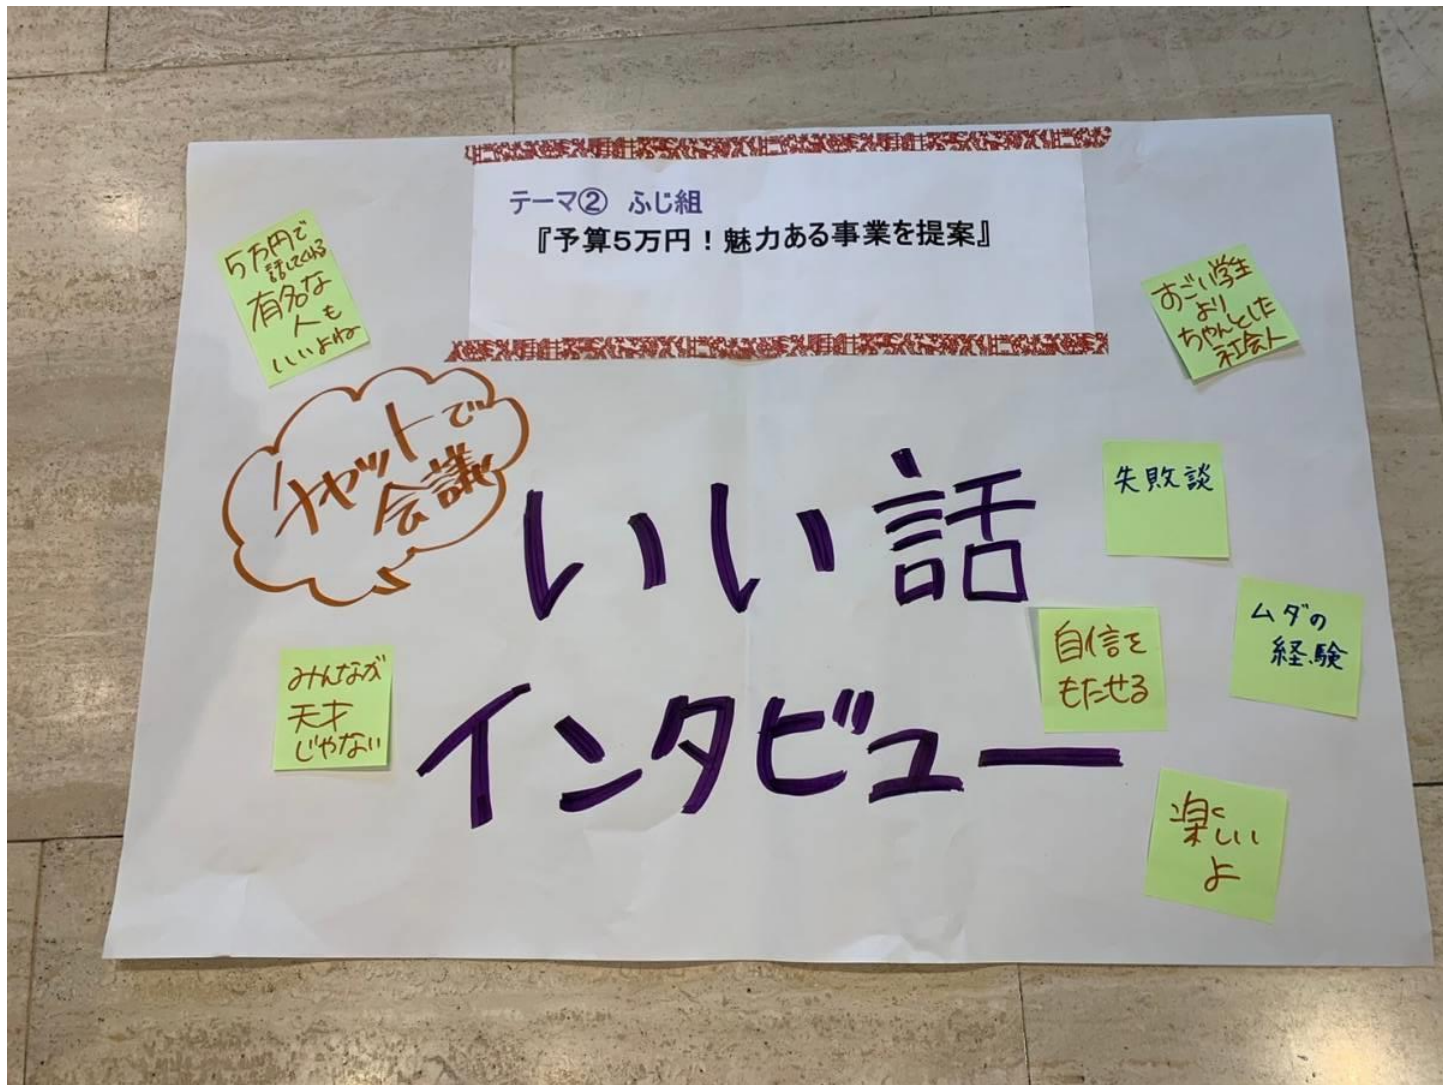 テーマ② ふじ組
『予算5万円！魅力ある事業を提案』
5万円で
話してくれる
有名な
人も
いいよね
すごい学生
より
ちゃんとした
社会人
チャットで
会議
いい話
インタビュー
失敗談
ムダの
経験
自信を
もたせる
みんなが
天才
じゃない
楽しい
よ